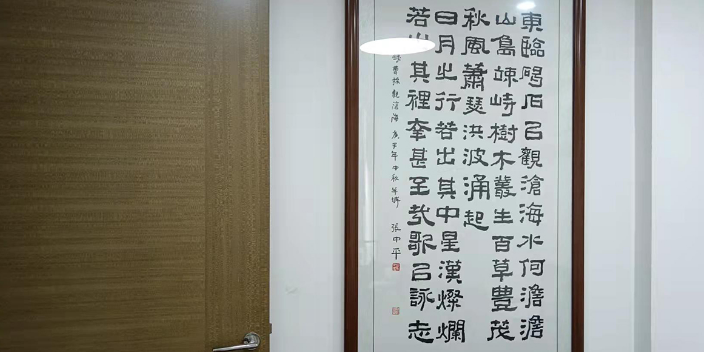 東臨碣石以觀滄海水何澹澹
山島竦峙樹木叢生百草豊茂
秋風蕭瑟洪波涌起
日月之行若出其中星漢燦爛
若出其裡幸甚至哉歌以詠志
曹操觀滄海 庚子年中秋 張中平